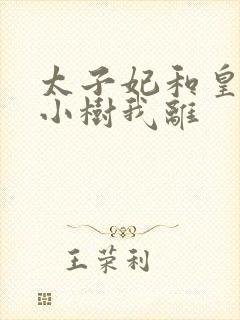 太子妃和皇
小樹我離
王荣利